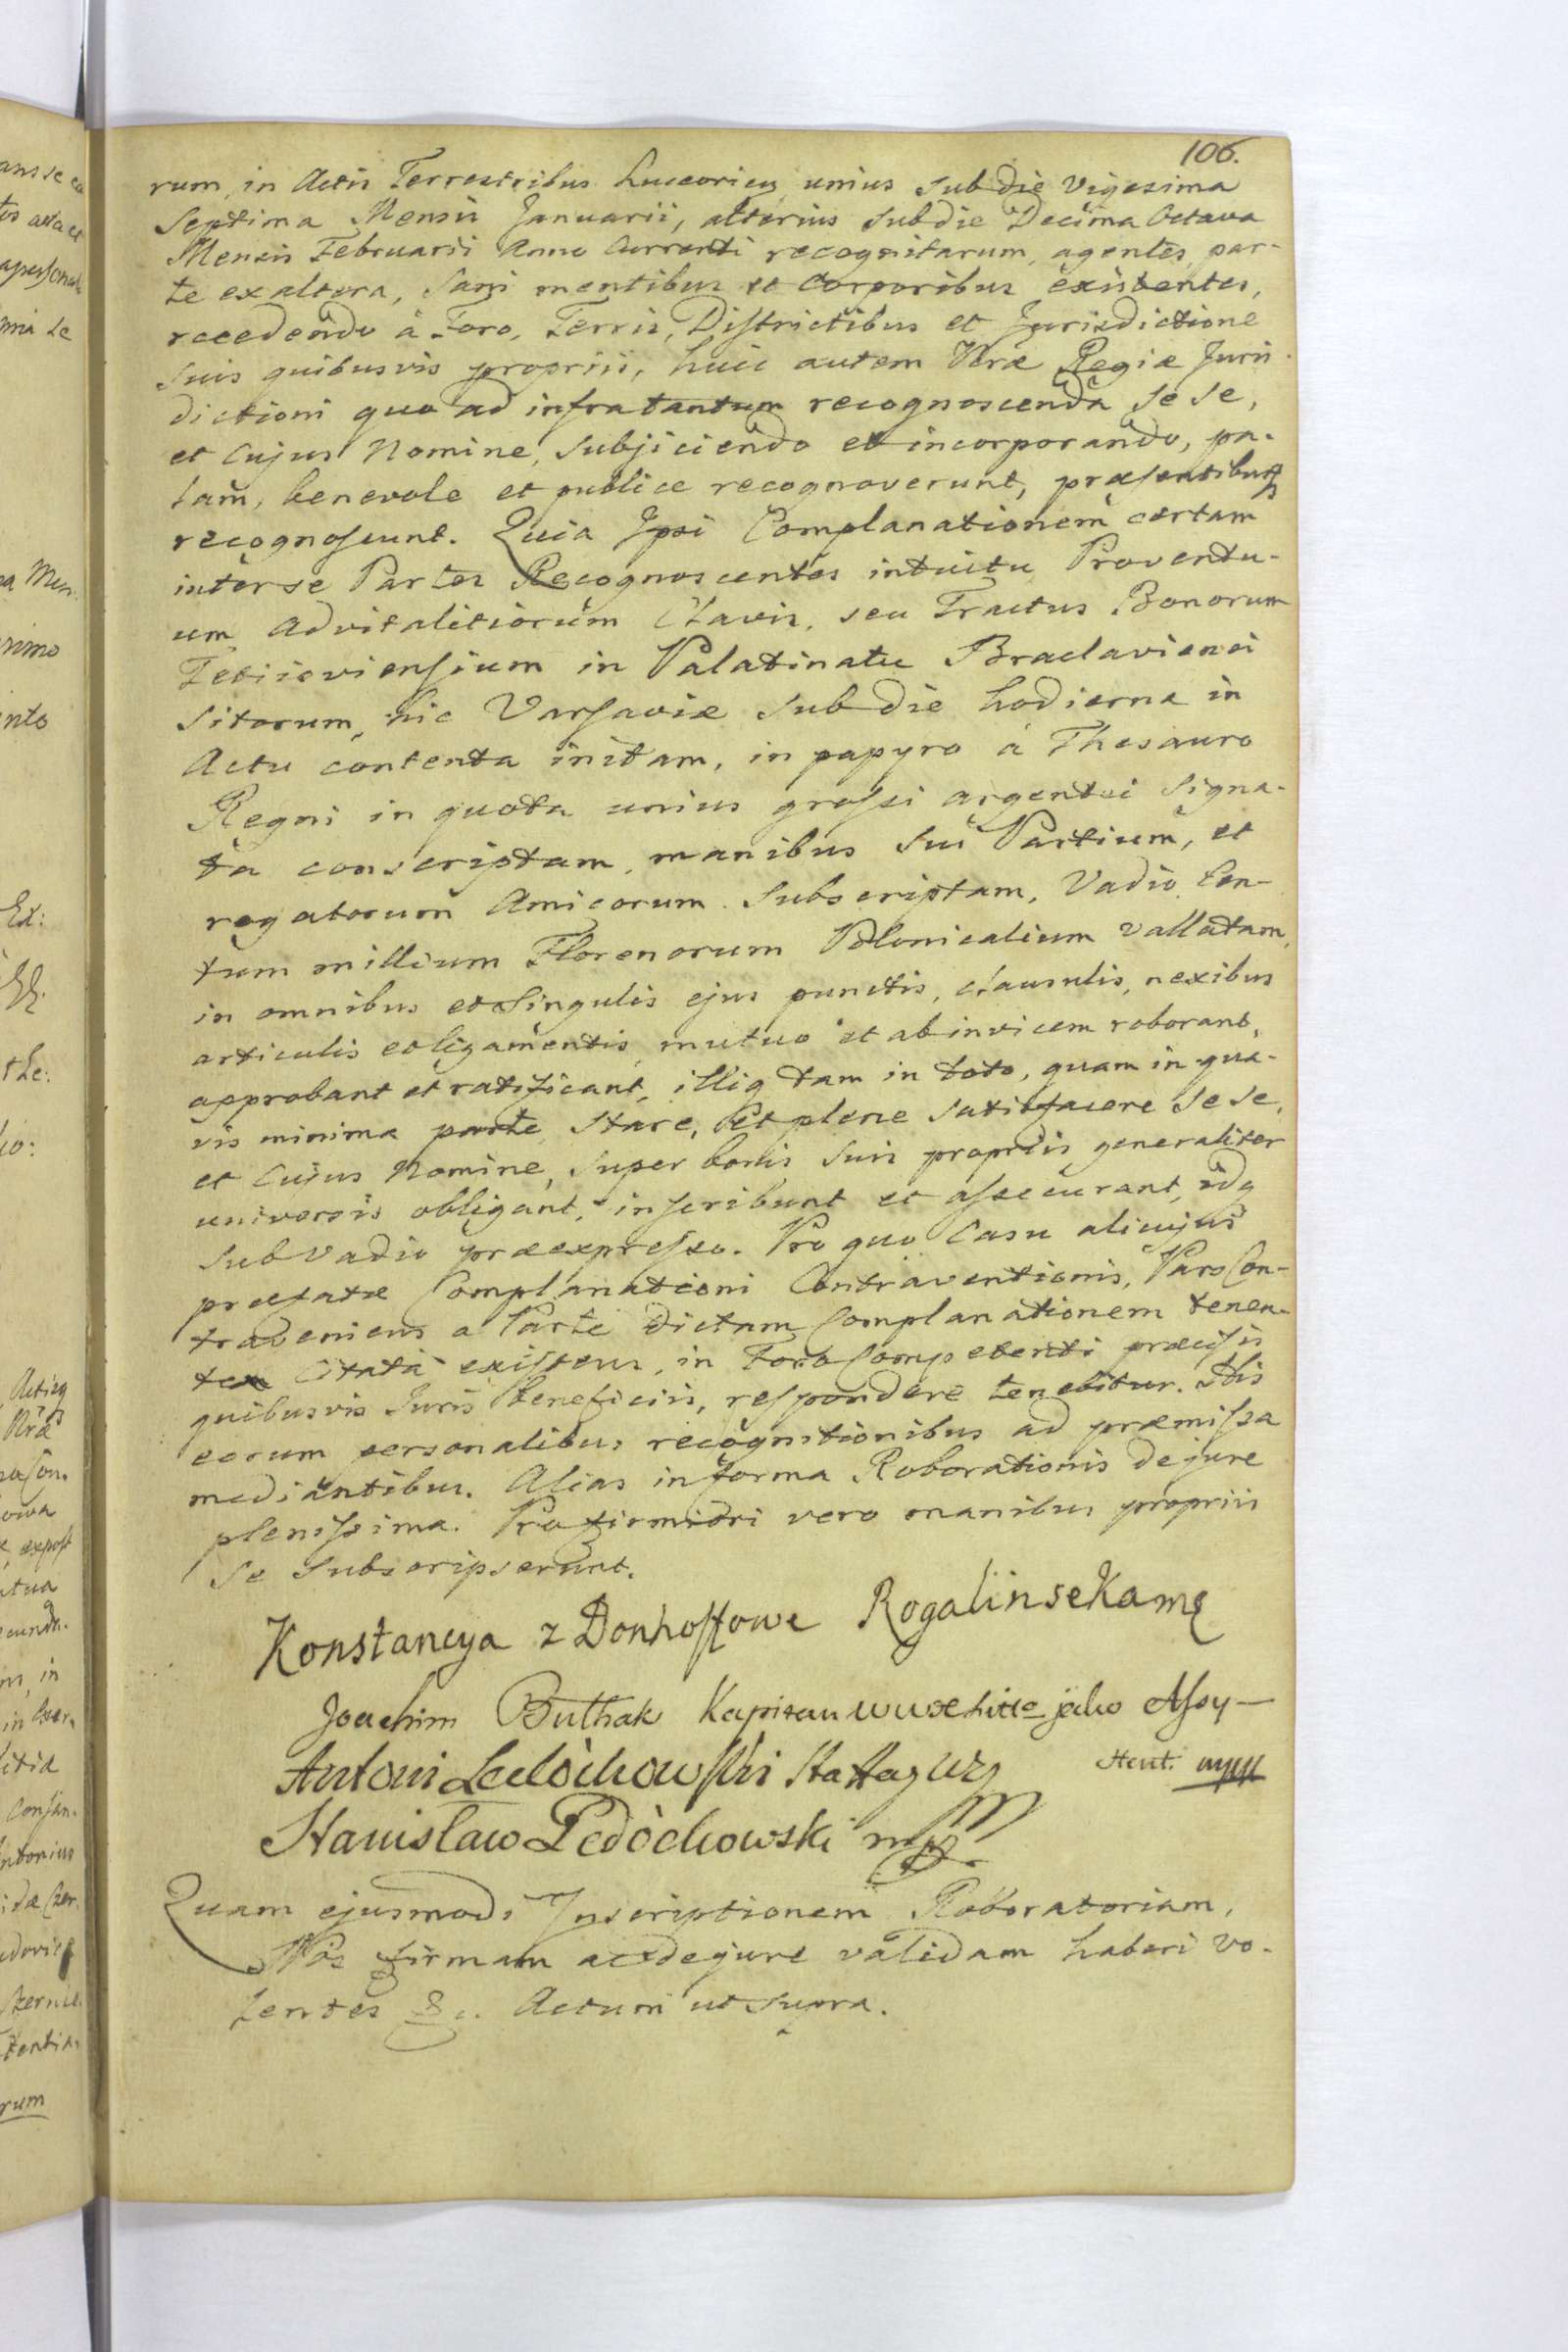 106.
rum, in Actis Terrestribus Luceorien unius sub die Vigesima
Septima Mensis Januarii, alterius sub die Decima Octava
Mensis Februarii Anno Currenti recognitarum, agentes, par-
te ex altera, Sani mentibus et Corporibus existentes,
recedendo à Foro, Terris, Districtibus et Jurisdictione
suis quibusvis propriis, huic autem Vrae Regiae Juris
dictioni quo ad infra tantum recognoscenda se se,
et Cujus Nomine, subjiciendo et incorporando, pa-
lam, benevole et publice recognoverunt, praesentibusq
recognoscunt. Quia Ipsi Complanationem certam
inter se Partes Recognoscentes intuitu Proventu-
um Advitalitiorum Clavis, seu Tractus Bonorum
Tetiioviensium in Palatinatu Braclaviensi
sitorum, hic Varsaviae sub die hodierna in
Actu contenta initam, in papyro à Thesauro
Regni in quota unius grossi argentei signa-
ta conscriptam, manibus sui Partium, et
rogatorum Amicorum subscriptam, Vadio Cen-
tum millium Florenorum Polonicalium vallatam,
in omnibus et singulis ejus punctis, clausulis, nexibus
articulis et ligamentis, mutuo et ab invicem roborant,
approbant et ratificant, illiq tam in toto, quam in qua-
vis minima parte, stare, et plene satisfacere se se,
et Cujus Nomine, super bonis suis propriis generaliter
universis obligant, inscribunt et assecurant, idq
sub Vadio praeexpresso. Pro quo Casu alicujus
praefatae Complanationi Contraventionis, Pars Con-
traveniens a Parte dictam Complanationem tenen-
te Citata existens, in Foro Competenti praecisis
quibusvis Juris beneficiis, respondere tenebitur. His
eorum personalibus recognitionibus ad praemissa
mediantibus. Alias in forma Roborationis de jure
plenissima. Pro firmiori vero manibus propriis
se subscripserunt.
Konstancya z Donhoffowe Rogalinsekamę
Joachim Buthak Kapitan jako Assy-
Antoni Ledòchowski
stent. mpp
Stanisław Ledòchowski mpp
Quam ejusmodi Inscriptionem Roboratoriam,
Nos firmam ac de jure validam haberi vo-
lentes &c. Actum ut supra.